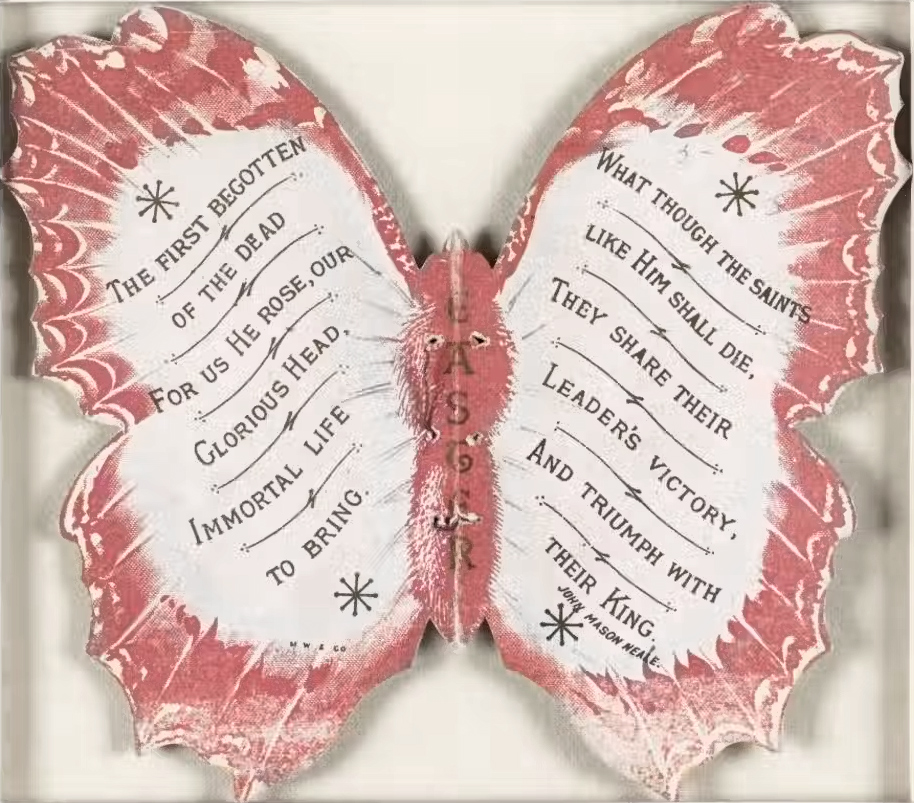 THE FIRST BEGOTTEN
OF THE DEAD
FOR US HE ROSE, OUR
GLORIOUS HEAD,
IMMORTAL LIFE
TO BRING.
M W & CO
EASTER
WHAT THOUGH THE SAINTS
LIKE HIM SHALL DIE,
THEY SHARE THEIR
LEADER'S VICTORY,
AND TRIUMPH WITH
THEIR KING.
JOHN MASON NEALE.